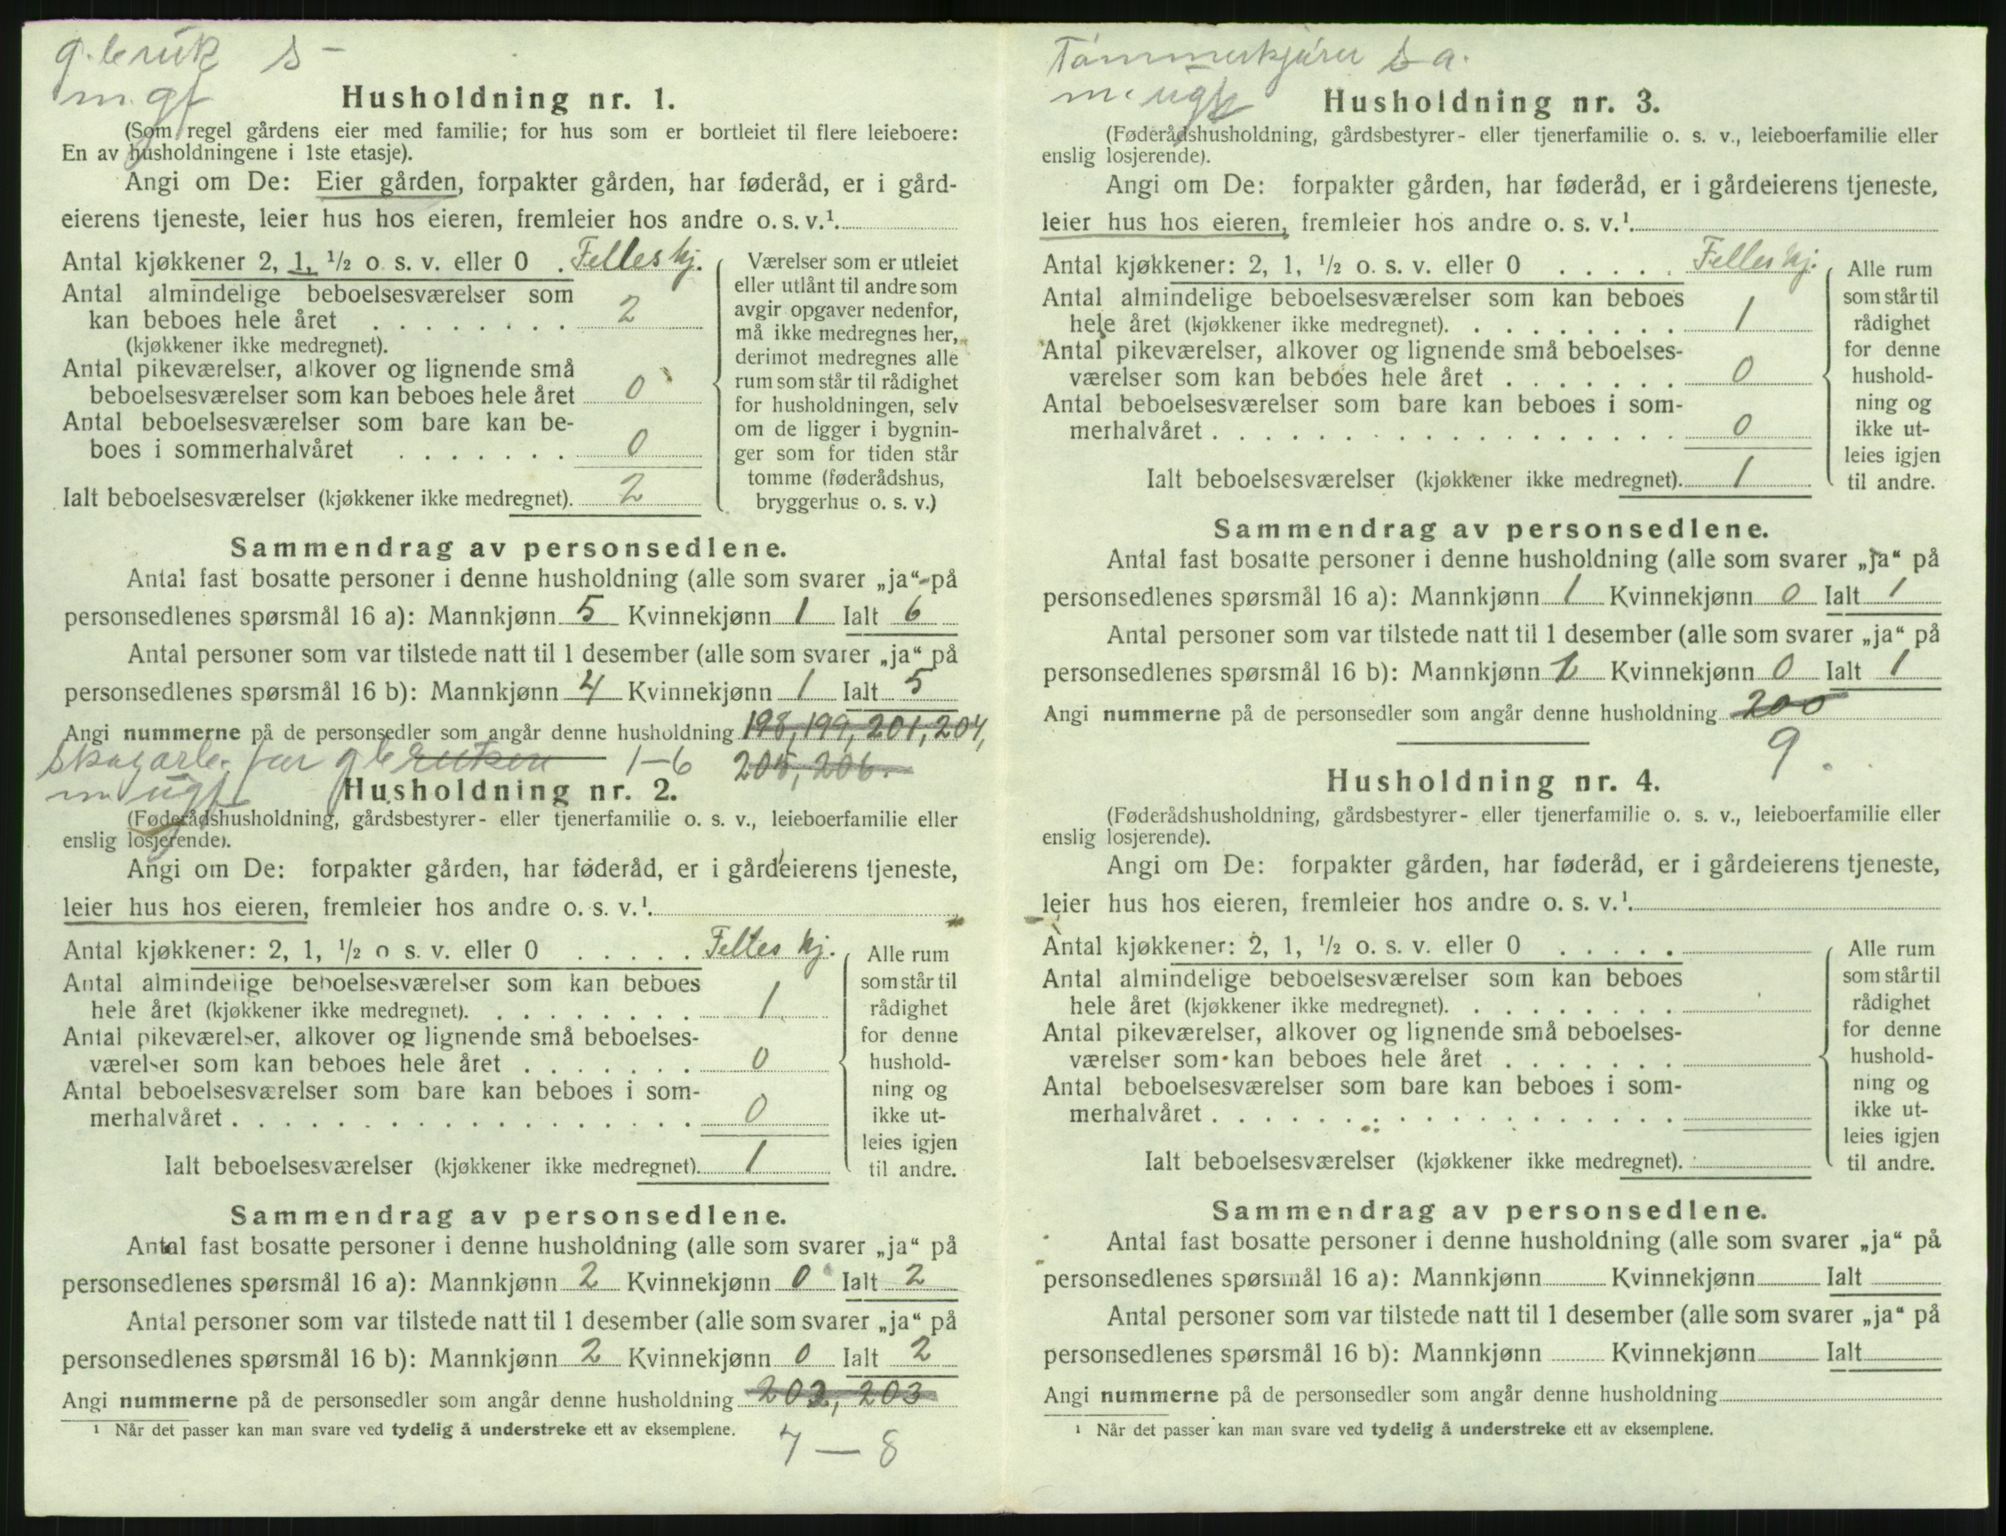 g.bruk S -
m. gf
Husholdning nr. 1.
(Som regel gårdens eier med familie; for hus som er bortleiet til flere leieboere:
En av husholdningene i 1ste etasje).
Angi om De: Eier gården, forpakter gården, har føderåd, er i gård-
eierens tjeneste, leier hus hos eieren, fremleier hos andre o. s. v.¹.
Antal kjøkkener 2, 1, ½ o. s. v. eller 0 . Felles kj.
Antal almindelige beboelsesværelser som
kan beboes hele året . . . . . . . . 2
(kjøkkener ikke medregnet).
Antal pikeværelser, alkover og lignende små
beboelsesværelser som kan beboes hele året 0
Antal beboelsesværelser som bare kan be-
boes i sommerhalvåret . . . . . . . 0
Ialt beboelsesværelser (kjøkkener ikke medregnet). 2
Værelser som er utleiet
eller utlånt til andre som
avgir opgaver nedenfor,
må ikke medregnes her,
derimot medregnes alle
rum som står til rådighet
for husholdningen, selv
om de ligger i bygnin-
ger som for tiden står
tomme (føderådshus,
bryggerhus o. s. v.)
Sammendrag av personsedlene.
Antal fast bosatte personer i denne husholdning (alle som svarer „ja“ på
personsedlenes spørsmål 16 a): Mannkjønn 5 Kvinnekjønn 1 Ialt 6
Antal personer som var tilstede natt til 1 desember (alle som svarer „ja“ på
personsedlenes spørsmål 16 b): Mannkjønn 4 Kvinnekjønn 1 Ialt 5
Angi nummerne på de personsedler som angår denne husholdning 198, 199, 201, 204,
skogarb. far g b 1-6 205, 206.
m ugf
Husholdning nr. 2.
(Føderådshusholdning, gårdsbestyrer- eller tjenerfamilie o. s. v., leieboerfamilie eller
enslig losjerende).
Angi om De: forpakter gården, har føderåd, er i gårdeierens tjeneste,
leier hus hos eieren, fremleier hos andre o. s. v.¹.
Antal kjøkkener: 2, 1, ½ o. s. v. eller 0 . . . . . Felles kj.
Antal almindelige beboelsesværelser som kan beboes
hele året (kjøkkener ikke medregnet). . . . . . . . . 1
Antal pikeværelser, alkover og lignende små beboelses-
værelser som kan beboes hele året . . . . . . . 0
Antal beboelsesværelser som bare kan beboes i som-
merhalvåret . . . . . . . . . . . . . . . . . . 0
Ialt beboelsesværelser (kjøkkener ikke medregnet). 1
Alle rum
som står til
rådighet
for denne
hushold-
ning og
ikke ut-
leies igjen
til andre.
Sammendrag av personsedlene.
Antal fast bosatte personer i denne husholdning (alle som svarer „ja“ på
personsedlenes spørsmål 16 a): Mannkjønn 2 Kvinnekjønn 0 Ialt 2
Antal personer som var tilstede natt til 1 desember (alle som svarer „ja“ på
personsedlenes spørsmål 16 b): Mannkjønn 2 Kvinnekjønn 0 Ialt 2
Angi nummerne på de personsedler som angår denne husholdning 202, 203
¹ Når det passer kan man svare ved tydelig å understreke ett av eksemplene.
7 — 8
Tømmerkjører s a.
m. ugf
Husholdning nr. 3.
(Føderådshusholdning, gårdsbestyrer- eller tjenerfamilie o. s. v., leieboerfamilie eller
enslig losjerende).
Angi om De: forpakter gården, har føderåd, er i gårdeierens tjeneste,
leier hus hos eieren, fremleier hos andre o. s. v.¹.
Antal kjøkkener: 2, 1, ½ o. s. v. eller 0 . . . . . Felles kj.
Antal almindelige beboelsesværelser som kan beboes
hele året (kjøkkener ikke medregnet). . . . . . . . . 1
Antal pikeværelser, alkover og lignende små beboelses-
værelser som kan beboes hele året . . . . . . . 0
Antal beboelsesværelser som bare kan beboes i som-
merhalvåret . . . . . . . . . . . . . . . . . . 0
Ialt beboelsesværelser (kjøkkener ikke medregnet). 1
Alle rum
som står til
rådighet
for denne
hushold-
ning og
ikke ut-
leies igjen
til andre.
Sammendrag av personsedlene.
Antal fast bosatte personer i denne husholdning (alle som svarer „ja“ på
personsedlenes spørsmål 16 a): Mannkjønn 1 Kvinnekjønn 0 Ialt 1
Antal personer som var tilstede natt til 1 desember (alle som svarer „ja“ på
personsedlenes spørsmål 16 b): Mannkjønn 1 Kvinnekjønn 0 Ialt 1
Angi nummerne på de personsedler som angår denne husholdning 200
9.
Husholdning nr. 4.
(Føderådshusholdning, gårdsbestyrer- eller tjenerfamilie o. s. v., leieboerfamilie eller
enslig losjerende).
Angi om De: forpakter gården, har føderåd, er i gårdeierens tjeneste,
leier hus hos eieren, fremleier hos andre o. s. v.¹.
Antal kjøkkener: 2, 1, ½ o. s. v. eller 0 . . . . .
Antal almindelige beboelsesværelser som kan beboes
hele året (kjøkkener ikke medregnet). . . . . . . . .
Antal pikeværelser, alkover og lignende små beboelses-
værelser som kan beboes hele året . . . . . . .
Antal beboelsesværelser som bare kan beboes i som-
merhalvåret . . . . . . . . . . . . . . . . . .
Ialt beboelsesværelser (kjøkkener ikke medregnet).
Alle rum
som står til
rådighet
for denne
hushold-
ning og
ikke ut-
leies igjen
til andre.
Sammendrag av personsedlene.
Antal fast bosatte personer i denne husholdning (alle som svarer „ja“ på
personsedlenes spørsmål 16 a): Mannkjønn Kvinnekjønn Ialt
Antal personer som var tilstede natt til 1 desember (alle som svarer „ja“ på
personsedlenes spørsmål 16 b): Mannkjønn Kvinnekjønn Ialt
Angi nummerne på de personsedler som angår denne husholdning
¹ Når det passer kan man svare ved tydelig å understreke ett av eksemplene.